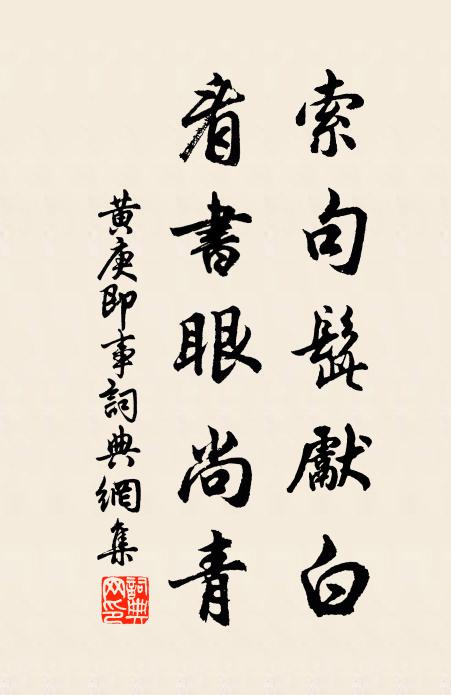 索句髭獻白
看書眼尚青
黃庚即事詞典網集
詞典網印